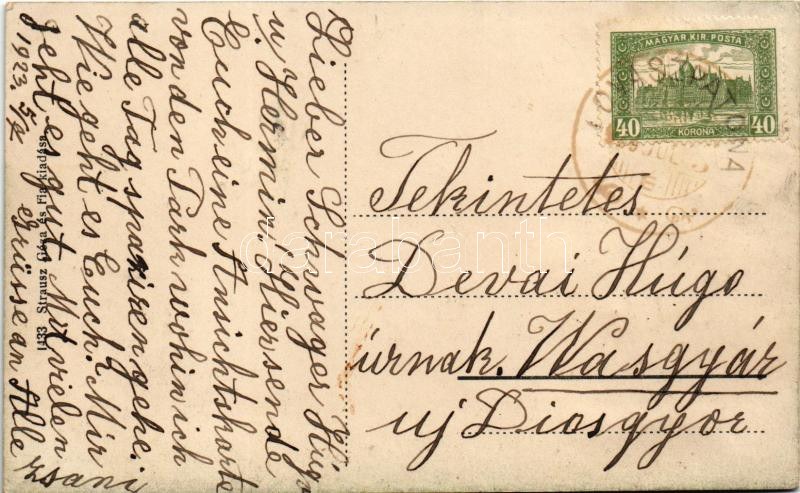 Lieber Schwager Hugo
u. Hermin! Hiersende
Euch eine Ansichtskarte
von den Park wohin ich
alle Tag spazirengehe.
Wie geht es Euch? Mir
geht es gut. Mit vielen
Grüsse an Alle
Zsani
1923. 5/7
1433 Strausz Géza és Fia kiadása
MAGYAR. KIR. POSTA
40 KORONA 40
LOVÁSZPATONA
Tekintetes
Devai Húgo
úrnak. Wasgyár
uj Diosgyor
darabanth